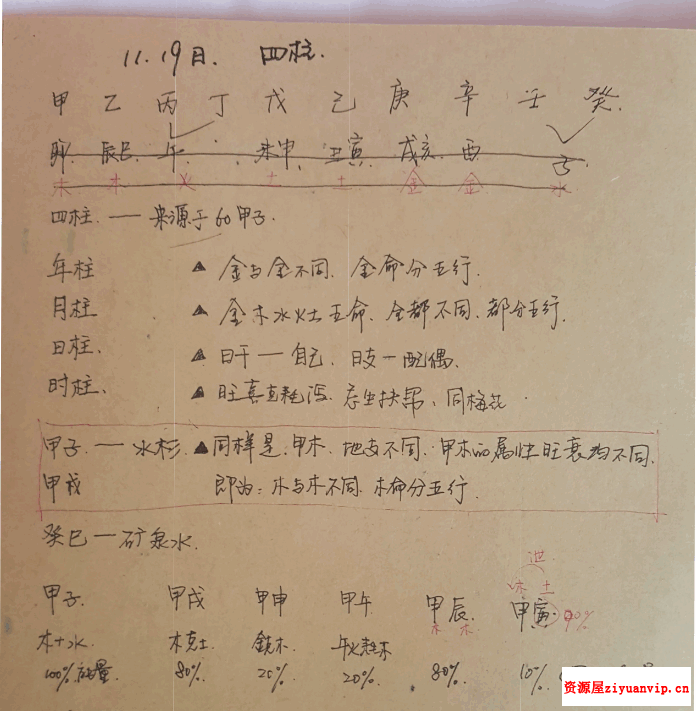 11.19日. 四柱.
甲 乙 丙 丁 戊 己 庚 辛 壬 癸.
卯 辰巳 午 未申 丑寅 戌亥 酉 子
木 木 火 土 土 金 金 水
四柱. — 来源于60甲子.
年柱 ▲ 金与金不同. 金命分五行.
月柱 ▲ 金木水火土五命. 全都不同. 都分五行.
日柱. ▲ 日干—自己. 日支—配偶.
时柱. ▲ 旺喜克耗泻. 生扶帮. 同梅花
甲子. — 水杉. ▲ 同样是. 甲木. 地支不同. 甲木的属性旺衰均不同.
甲戌 即为: 木与木不同. 木命分五行.
癸巳—矿泉水.
泄
木 土
甲子. 甲戌 甲申 甲午 甲辰. 甲寅. 90%
木 木
木+水. 木克土 金克木 午火耗木
100%能量 80%. 20%. 20%. 80%. 10%.
资源屋ziyuanvip.cn